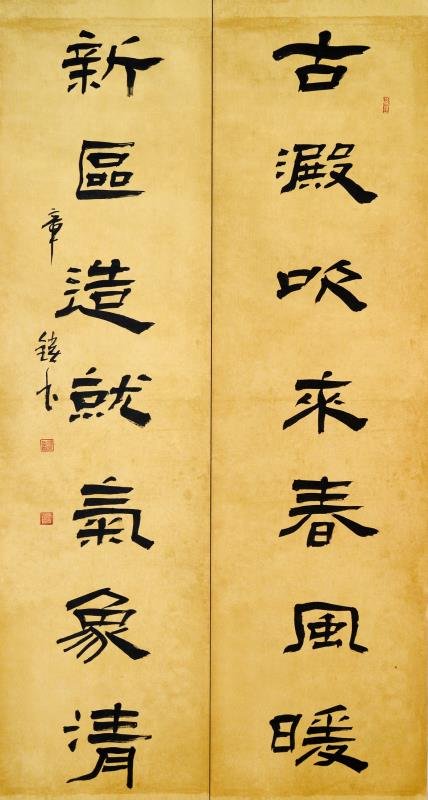 古澱吹來春風暖
新區造就氣象清
章